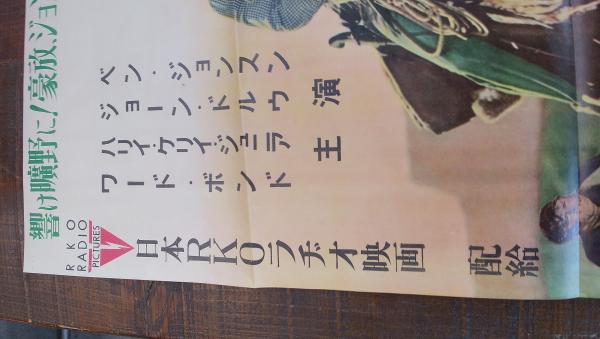 響け曠野に!豪放、ジョン
ベン・ジョンスン
ジョーン・ドルウ
ハリイ・ケリイ・ジュニア
ワード・ボンド
主演
RKO
RADIO
PICTURES
日本RKOラヂオ映画
配給